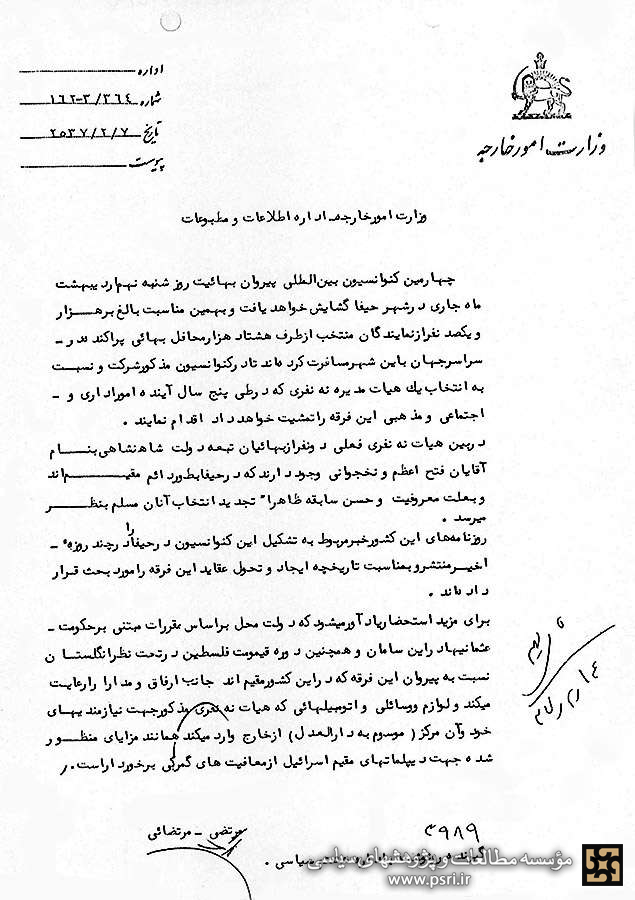 اداره
شماره ۱۶۲-۳/۳۶۴
تاریخ ۲۵۳۷/۲/۷
پیوست
وزارت امور خارجه
وزارت امور خارجه اداره اطلاعات و مطبوعات
چهارمین کنوانسیون بین‌المللی پیروان بهائیت روز شنبه نهم اردیبهشت
ماه جاری در شهر حیفا گشایش خواهد یافت و بهمین مناسبت بالغ بر هزار
و یکصد نفر از نمایندگان منتخب از طرف هشتاد هزار محافل بهائی پراکنده در -
سراسر جهان باین شهر مسافرت کرده‌اند تا در کنوانسیون مذکور شرکت و نسبت
به انتخاب یك هیات مدیره نه نفری که در طی پنج سال آینده امور اداری و -
اجتماعی و مذهبی این فرقه را تمشیت خواهد داد اقدام نمایند .
در بین هیات نه نفری فعلی دو نفر از بهائیان تبعه دولت شاهنشاهی بنام
آقایان فتح اعظم و نخجوانی وجود دارند که در حیفا بطور دائم مقیم‌اند
و بعلت معروفیت و حسن سابقه ظاهرا" تجدید انتخاب آنان مسلم بنظر
میرسد .
روزنامه‌های این کشور خبر مربوط به تشکیل این کنوانسیون در حیفا را در چند روزه -
اخیر منتشر و بمناسبت تاریخچه ایجاد و تحول عقاید این فرقه را مورد بحث قرار
داده‌اند .
برای مزید استحضار یادآور میشود که دولت محل بر اساس مقررات مبتنی بر حکومت -
عثمانیها در این سامان و همچنین دوره قیمومت فلسطین در تحت نظر انگلستان
نسبت به پیروان این فرقه که در این کشور مقیم‌اند جانب ارفاق و مدارا را رعایت
میکند و لوازم و وسائلی و اتومبیلهائی که هیات نه نفری مذکور جهت نیازمندیهای
خود و آن مرکز ( موسوم به دارالعدل ) از خارج وارد میکند همانند مزایای منظور
شده جهت دیپلماتهای مقیم اسرائیل از معافیت های گمرکی برخوردار است .
مرتضی - مرتضائی
۳۹۸۹
سیاسی .
مؤسسه مطالعات و پژوهشهای سیاسی
www.psri.ir